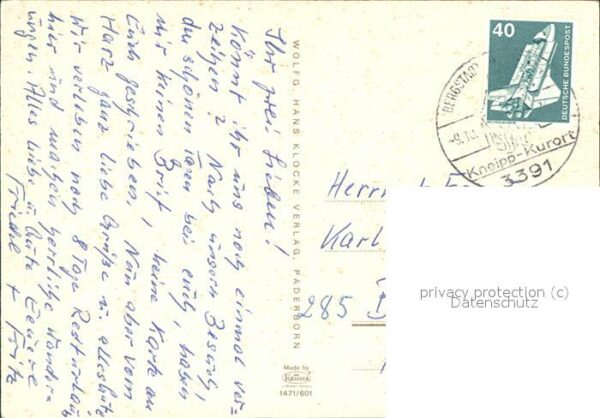 Ihr zwei Lieben!
Könnt ihr uns noch einmal ver-
zeihen? Nach unserem Besuch,
den schönen Tagen bei euch, haben
wir keinen Brief, keine Karte an
Euch geschrieben. Nun aber vom
Harz ganz liebe Grüße u. alles Gute
Wir verleben noch 8 Tage Resturlaub
hier und machen herrliche Wander-
ungen. Alles Liebe u. Gute Eure
Friedel + Fritz
WOLFG. HANS KLOCKE VERLAG PADERBORN
Made by
KRÜGER
1471/601
40
DEUTSCHE BUNDESPOST
BERGSTADT
-9.10
Kneipp-Kurort
3391
Herrn
Karl
285 B
privacy protection (c)
Datenschutz